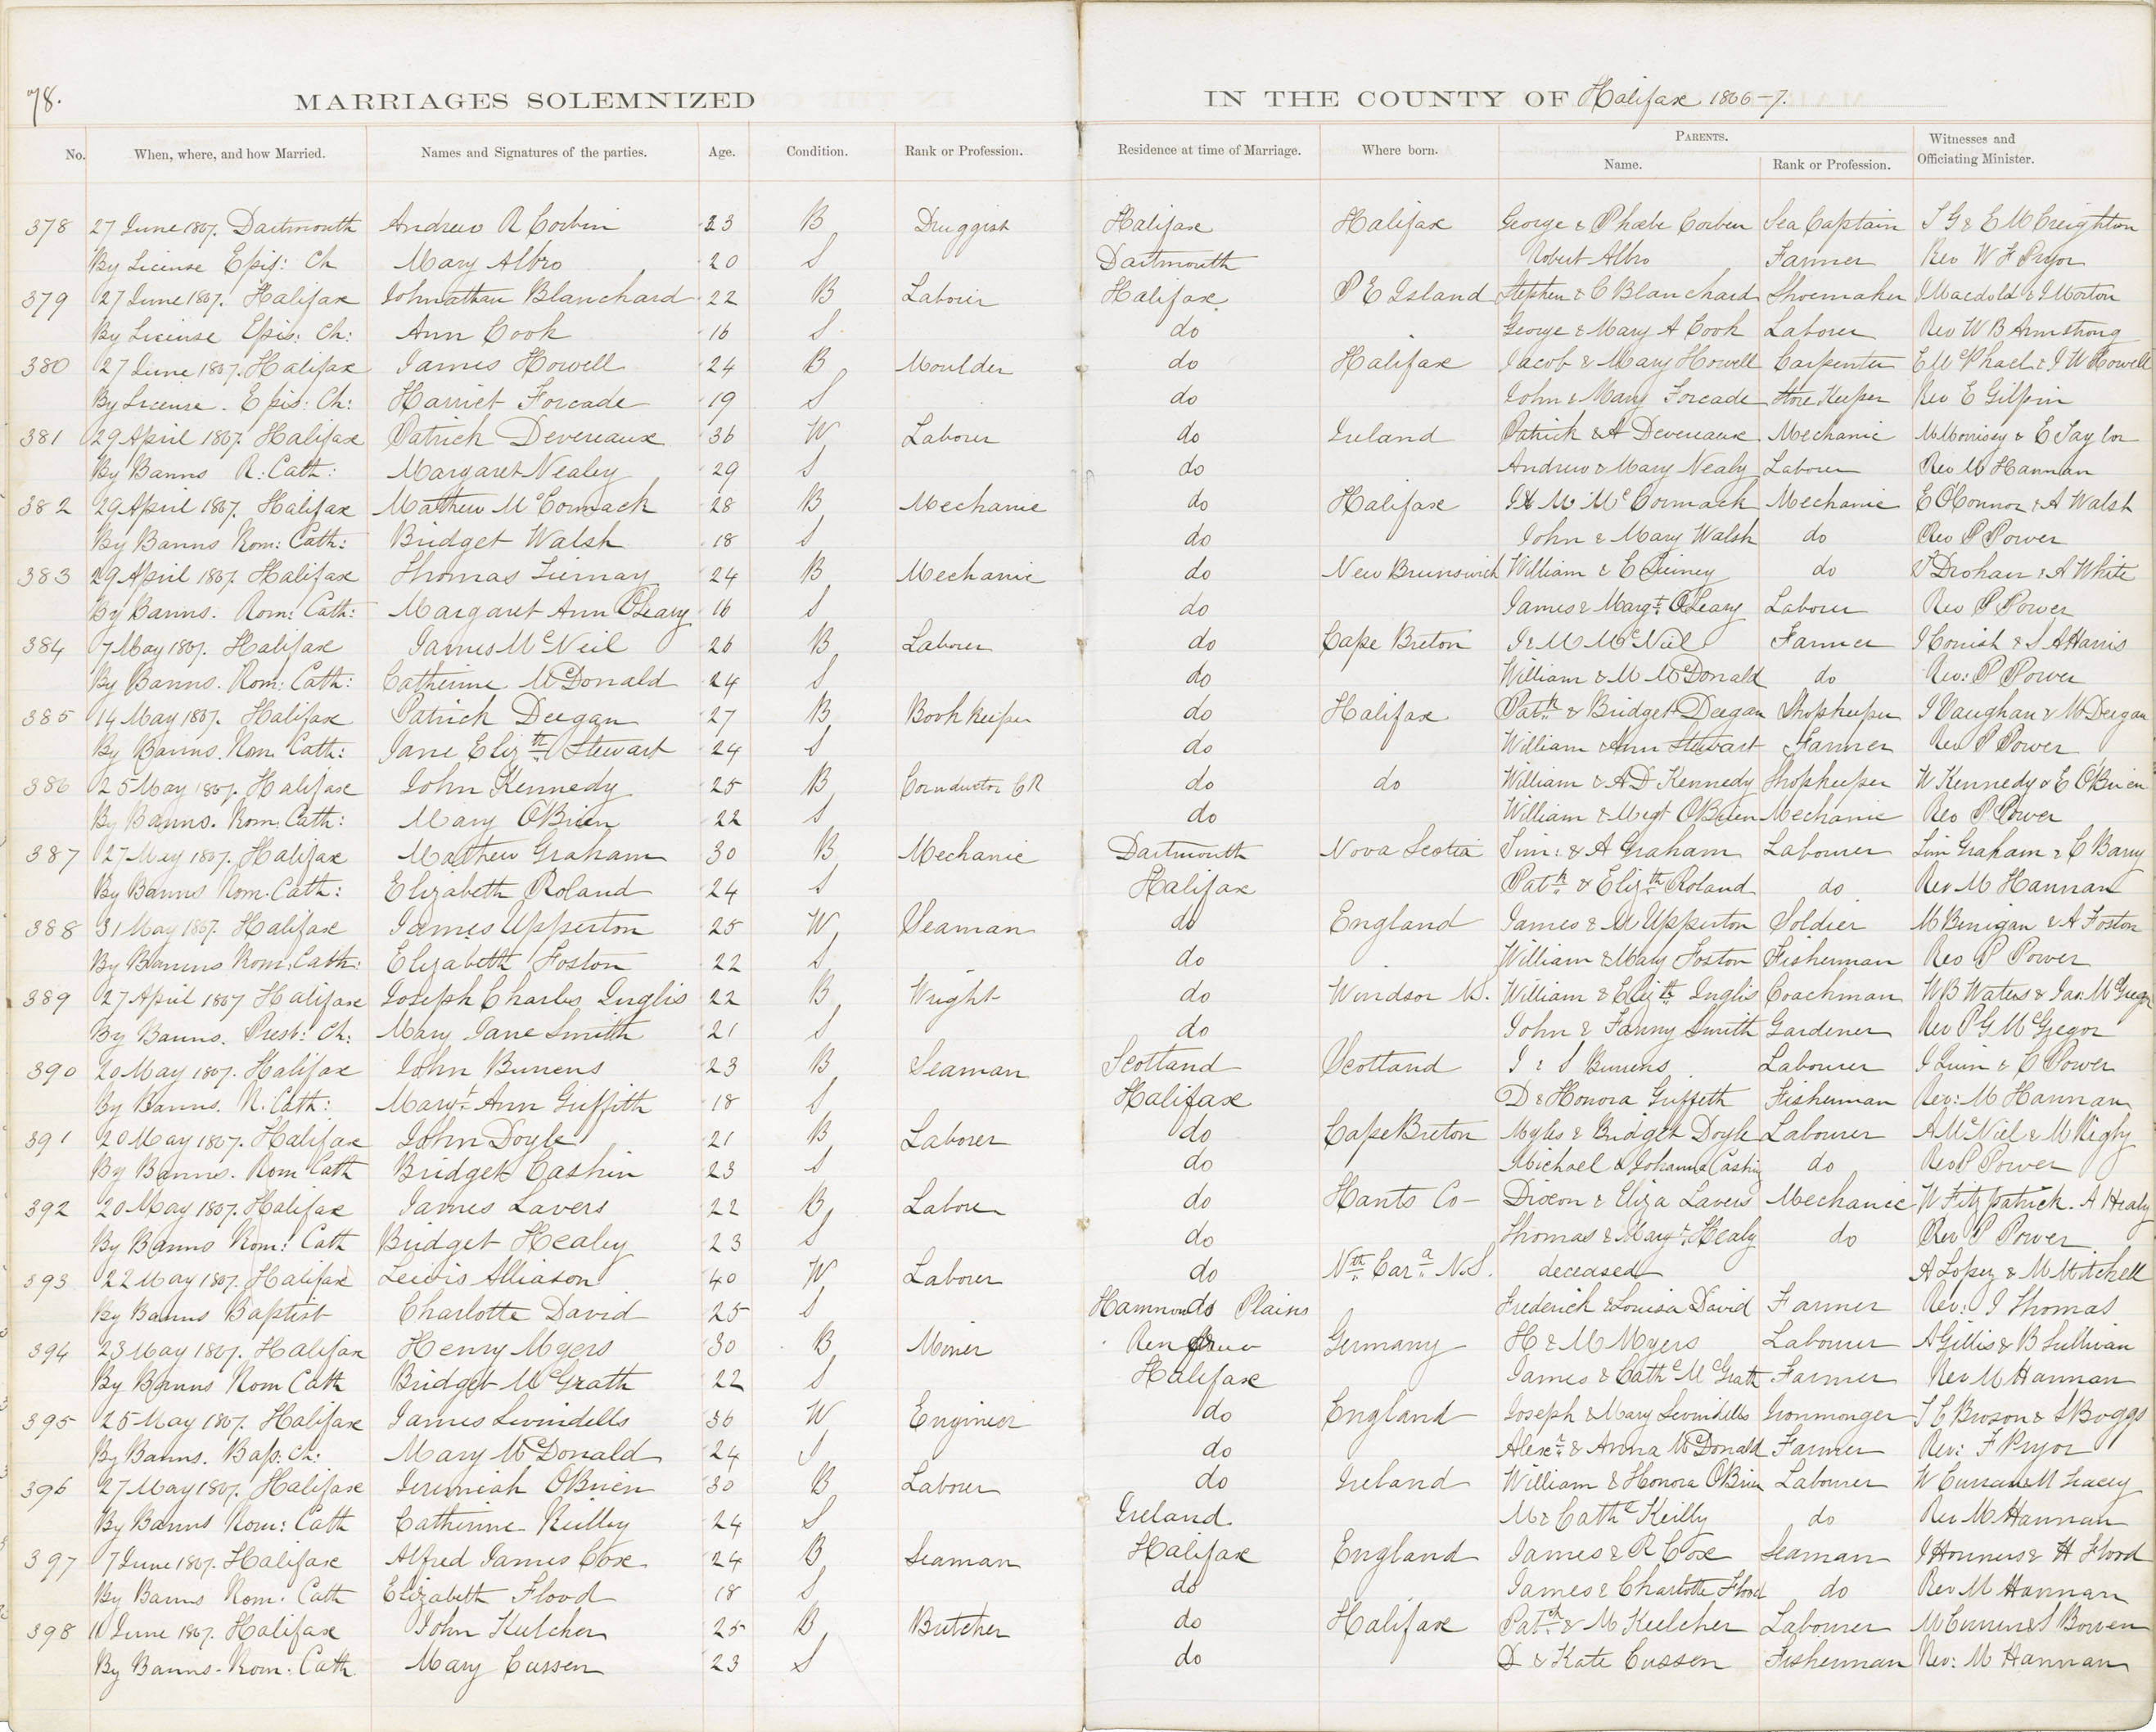 78.
MARRIAGES SOLEMNIZED IN THE COUNTY OF Halifax 1866-7.
No. When, where, and how Married. Names and Signatures of the parties. Age. Condition. Rank or Profession. Residence at time of Marriage. Where born. PARENTS. Name. Rank or Profession. Witnesses and Officiating Minister.
378 27 June 1867. Dartmouth Andrew R Corbin 23 B Druggist Halifax Halifax George & Phoebe Corben Sea Captain T G & E M Creighton
By License Epis: Ch Mary Albro 20 S Dartmouth Robert Albro Farmer Rev W F Pryor
379 27 June 1867. Halifax Johnathan Blanchard 22 B Laborer Halifax P E Island Stephen & C Blanchard Shoemaker J Macdold & J Morton
By License Epis: Ch: Ann Cook 16 S do George & Mary A Cook Laborer Rev W B Armstrong
380 27 June 1867. Halifax James Howell 24 B Moulder do Halifax Jacob & Mary Howell Carpenter E McPhael & J W Howell
By License. Epis: Ch: Harriet Forcade 19 S do John & Mary Forcade Store Keeper Rev E Gilpin
381 29 April 1867. Halifax Patrick Devereaux 36 W Laborer do Ireland Patrick & A Devereaux Mechanic M Morrisey & E Taylor
By Banns R: Cath: Margaret Nealey 29 S do Andrew & Mary Nealy Laborer Rev M Hannan
382 29 April 1867. Halifax Mathew McCormack 28 B Mechanic do Halifax J & M McCormack Mechanic E O'Connor & A Walsh
By Banns Rom: Cath: Bridget Walsh 18 S do John & Mary Walsh do Rev P Power
383 29 April 1867. Halifax Thomas 24 B Mechanic do New Brunswick William & E do T Drohan & A White
By Banns. Rom: Cath: Margaret Ann O'Leary 16 S do James & Margt O'Leary Laborer Rev P Power
384 7 May 1867. Halifax James McNeil 26 B Laborer do Cape Breton J & M McNeil Farmer J Cornish & S A Harris
By Banns. Rom: Cath: Catherine McDonald 24 S do William & M McDonald do Rev: P Power
385 14 May 1867. Halifax Patrick Deegan 27 B Book keeper do Halifax Patk & Bridget Deegan Shopkeeper J Vaughan & M Deegan
By Banns. Rom Cath: Jane Elizth Stewart 24 S do William & Ann Stewart Farmer Rev P Power
386 25 May 1867. Halifax John Kennedy 25 B Conductor C R do do William & A D Kennedy Shopkeeper W Kennedy & E O'Brien
By Banns. Rom. Cath: Mary O'Brien 22 S do William & Margt O'Brien Mechanic Rev P Power
387 27 May 1867. Halifax Mathew Graham 30 B Mechanic Dartmouth Nova Scotia Sim: & A Graham Labourer Sim Graham & C Barry
By Banns Rom. Cath: Elizabeth Roland 24 S Halifax Patk & Elizth Roland do Rev M Hannan
388 31 May 1867. Halifax James Upperton 25 W Seaman do England James & M Upperton Soldier M Benigan & A Foston
By Banns Rom: Cath: Elizabeth Foston 22 S do William & Mary Foston Fisherman Rev P Power
389 27 April 1867 Halifax Joseph Charles Inglis 22 B Wright do Windsor N.S. William & Elizth Inglis Coachman W B Waters & Jas. McGregor
By Banns. Prest: Ch: Mary Jane Smith 21 S do John & Fanny Smith Gardener Rev P G McGregor
390 20 May 1867. Halifax John Burrens 23 B Seaman Scotland Scotland J & S Burrens Labourer J Quin & C Power
By Banns. R. Cath: Margt Ann Griffith 18 S Halifax D & Honora Griffeth Fisherman Rev: M Hannan
391 20 May 1867. Halifax John Doyle 21 B Laborer do Cape Breton Myles & Bridget Doyle Labourer A McNeil & M Rigby
By Banns. Rom Cath Bridget Cashin 23 S do Michael & Johanna Cashin do Rev P Power
392 20 May 1867. Halifax James Lavers 22 B Laborer do Hants Co- Dixon & Eliza Lavers Mechanic W Fitzpatrick. A Healy
By Banns Rom: Cath Bridget Healey 23 S do Thomas & Margt Healy do Rev P Power
393 22 May 1867. Halifax Lewis Alliason 40 W Laborer do Nth Cara N.S. deceased A Lopez & M Mitchell
By Banns Baptist Charlotte David 25 S Hammonds Plains Frederick & Louisa David Farmer Rev: J Thomas
394 23 May 1867. Halifax Henry Myers 30 B Miner Renfrew Germany H & M Myers Labourer A Gillis & B Sullivan
By Banns Rom Cath Bridget McGrath 22 S Halifax James & Cath McGrath Farmer Rev M Hannan
395 25 May 1867. Halifax James Swindells 36 W Engineer do England Joseph & Mary Swindells Ironmonger T C Browne & S Boggs
By Banns. Bap: Ch: Mary McDonald 24 S do Alexr & Anna McDonald Farmer Rev: F Pryor
396 27 May 1867. Halifax Jeremiah O'Brien 30 B Laborer do Ireland William & Honora O'Brien Labourer W Curran & M Tracey
By Banns Rom: Cath Catherine Reilley 24 S Ireland. M & Cathe Reilly do Rev M Hannan
397 7 June 1867. Halifax Alfred James Cox 24 B Seaman Halifax England James & R Cox Seaman J Honners & H Flood
By Banns Rom: Cath Elizabeth Flood 18 S do James & Charlotte Flood do Rev M Hannan
398 11 June 1867. Halifax John Kulcher 25 B Butcher do Halifax Patk & M Keelcher Labourer M Curren & S Bowen
By Banns. Rom: Cath Mary Cussen 23 S do D & Kate Cussen Fisherman Rev: M Hannan